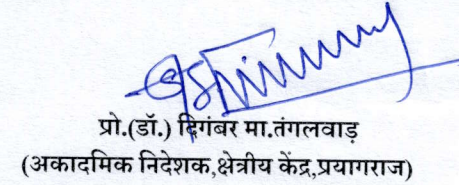 प्रो.(डॉ.) दिगंबर मा.तंगलवाड़
(अकादमिक निदेशक,क्षेत्रीय केंद्र,प्रयागराज)